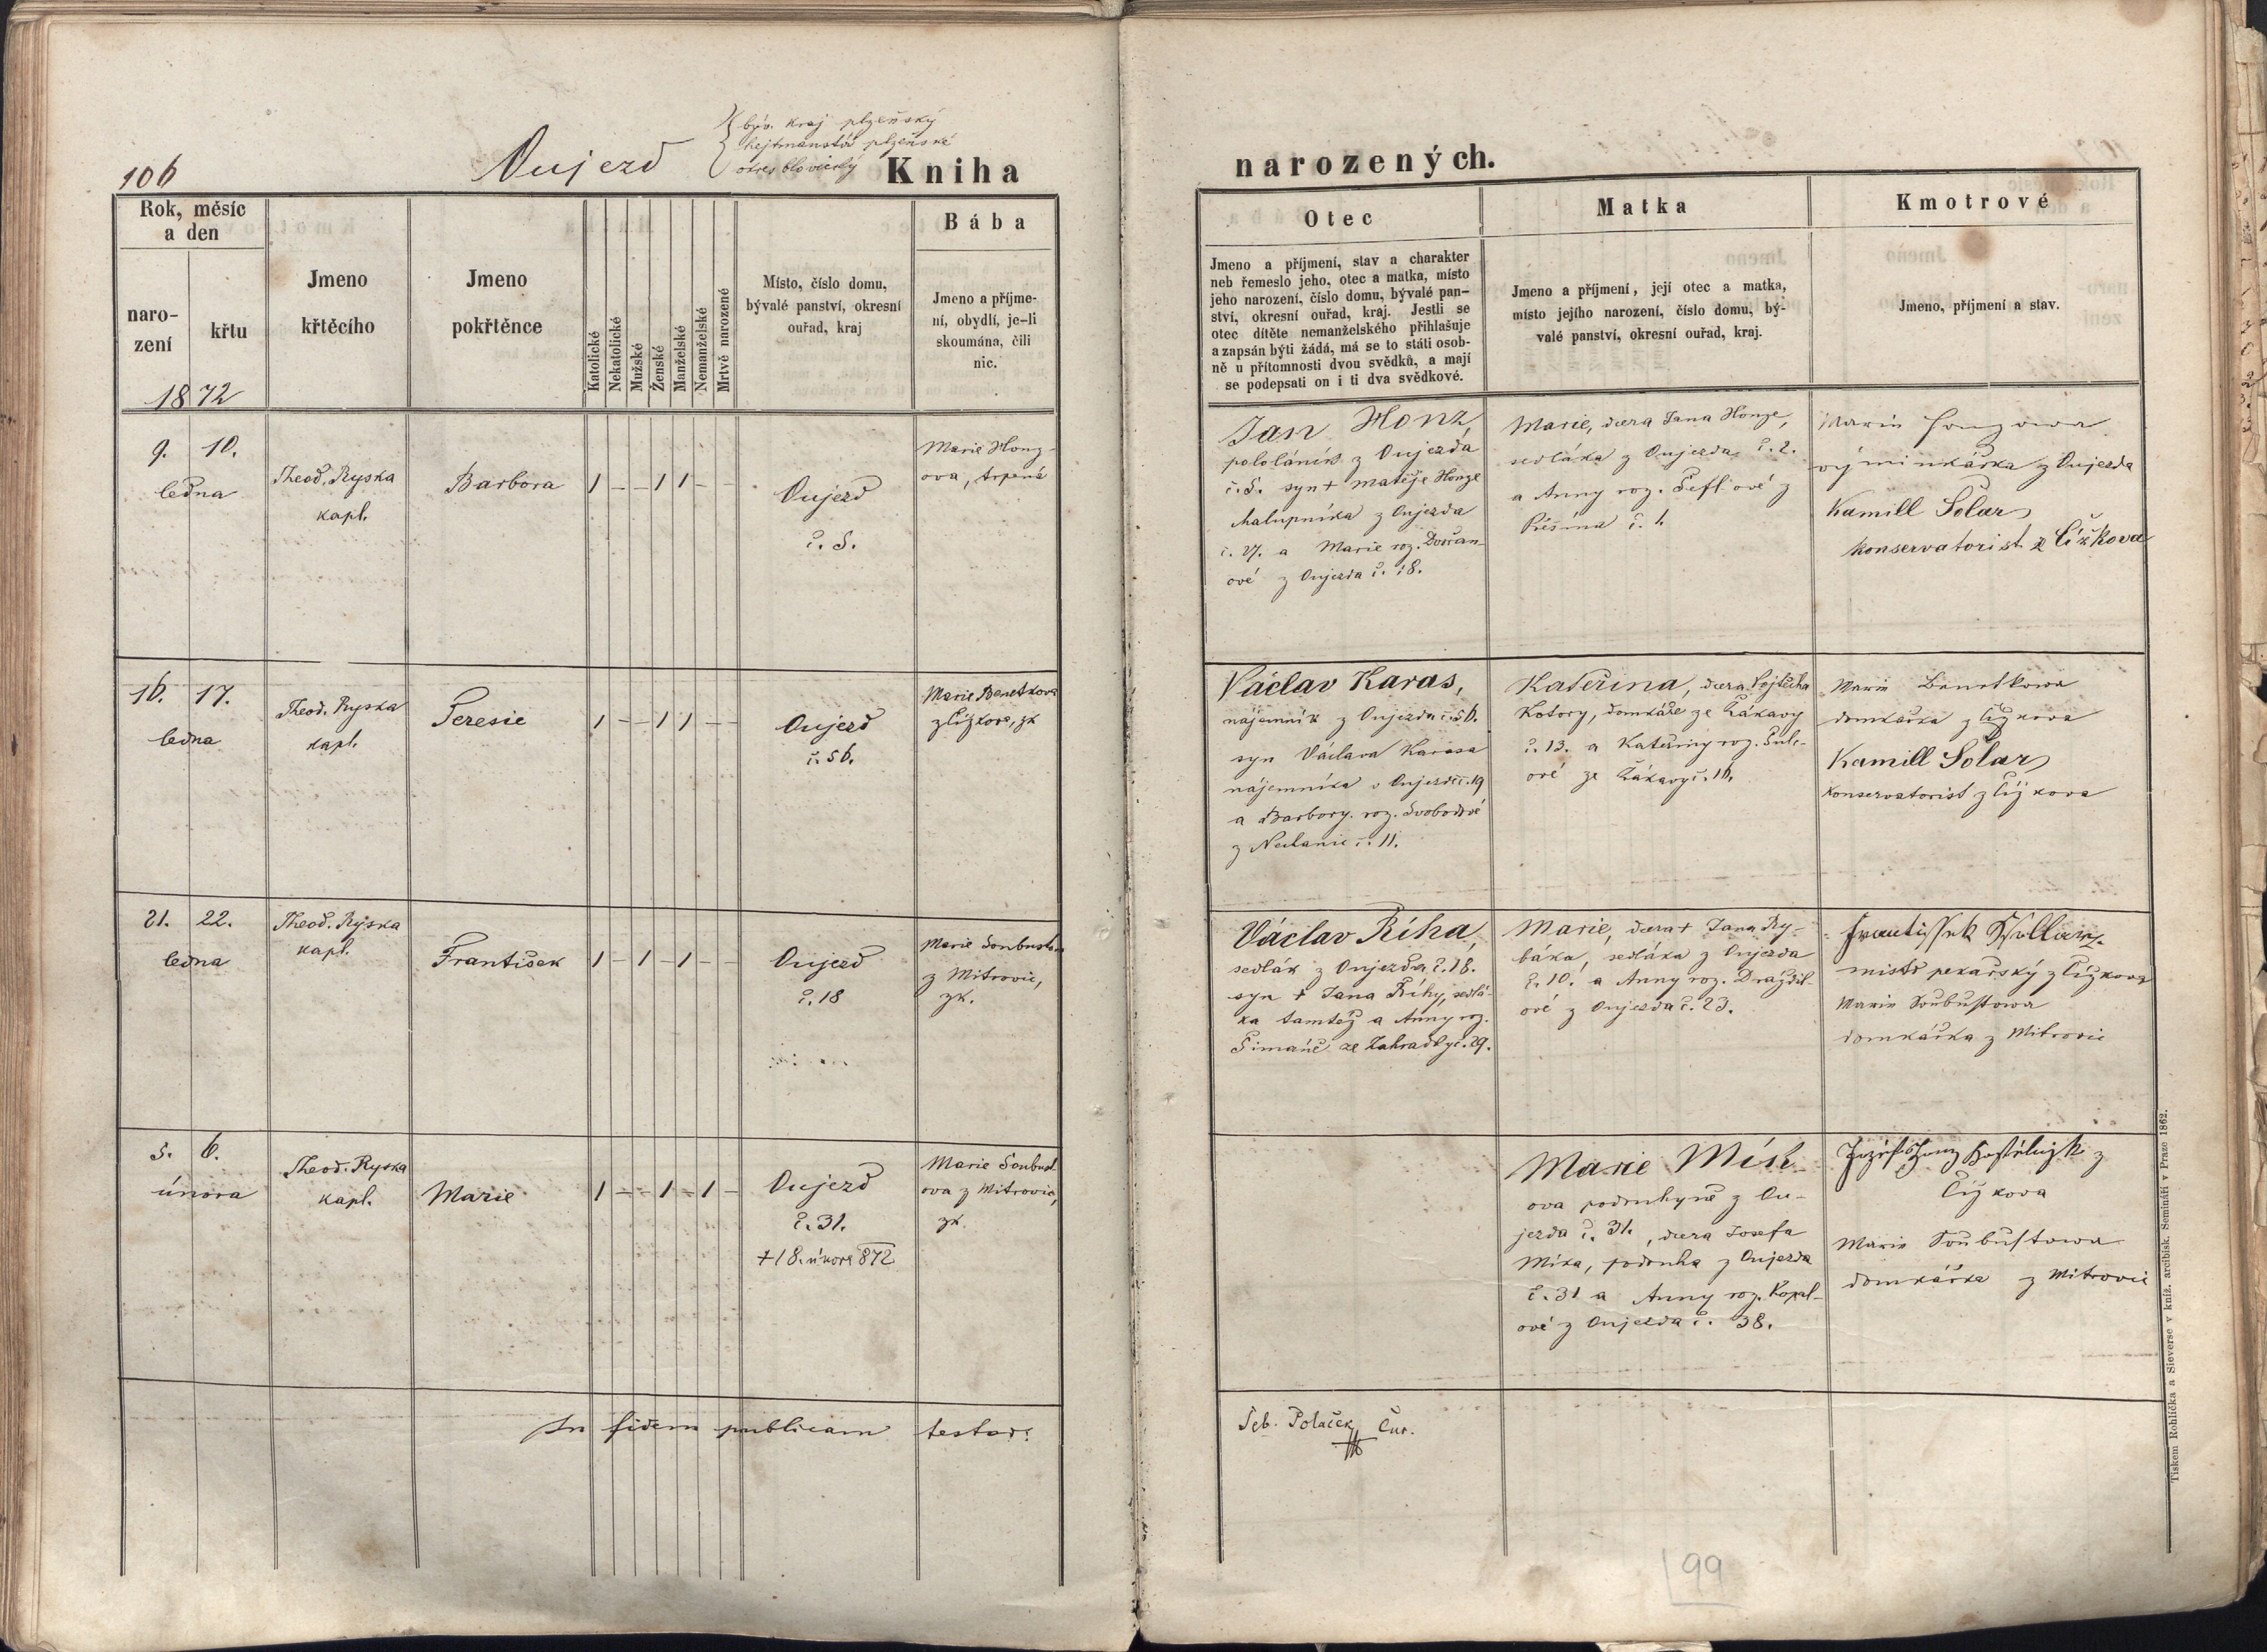 106
Oujezd
býv. kraj plzeňský
hejtmanství plzeňské
okres blovický
Kniha
narozených.
Rok, měsíc
a den
naro-
zení
křtu
1872
Jmeno
křtěcího
Jmeno
pokřtěnce
Katolické
Nekatolické
Mužské
Ženské
Manželské
Nemanželské
Mrtvě narozené
Místo, číslo domu,
bývalé panství, okresní
ouřad, kraj
Bába
Jmeno a příjme-
ní, obydlí, je-li
skoumána, čili
nic.
Otec
Jmeno a příjmení, stav a charakter
neb řemeslo jeho, otec a matka, místo
jeho narození, číslo domu, bývalé pan-
ství, okresní ouřad, kraj. Jestli se
otec dítěte nemanželského přihlašuje
a zapsán býti žádá, má se to státi osob-
ně u přítomnosti dvou svědků, a mají
se podepsati on i ti dva svědkové.
Matka
Jmeno a příjmení, její otec a matka,
místo jejího narození, číslo domu, bý-
valé panství, okresní ouřad, kraj.
Kmotrové
Jmeno, příjmení a stav.
9. 10.
ledna
Theod. Ryska
kapl.
Barbora
1 – – 1 1 – –
Oujezd
č. 5.
Marie Honz-
ova, trpená
Jan Honz,
pololáník z Oujezda
č. 5. syn + Matěje Honze
chalupníka z Oujezda
č. 27. a Marie roz. Dvořan-
ové z Oujezda č. 18.
Marie, dcera Jana Honze,
sedláka z Oujezda č. 2.
a Anny roz. Šeflové z
č. 1.
Marie Honzowa
výminkářka z Oujezda
Kamill Šolar
konservatorist z Čížkova
16. 17.
ledna
Theod. Ryska
kapl.
Teresie
1 – – 1 1 – –
Oujezd
č. 56.
Marie Benetkova
z Čížkova, zk
Václav Karas,
nájemník z Oujezda č. 56.
syn Václava Karasa
nájemníka v Oujezdě č. 19
a Barbory roz. Svobodové
z č. 11.
Kateřina, dcera Vojtěcha
Kotory, domkáře ze Žákavy
č. 13. a Kateřiny roz. Šulc-
ové ze Žákavy č. 16.
Marie Benetkowa
domkářka z Čížkova
Kamill Šolar
konservatorist z Čížkova
21. 22.
ledna
Theod. Ryska
kapl.
František
1 – 1 – 1 – –
Oujezd
č. 18
Marie Soubustova
z Mitrovic,
zk.
Václav Říha,
sedlák z Oujezda č. 18.
syn + Jana Říhy, sedlá-
ka tamtéž a Anny roz.
Šimáně ze Zahrádky č. 29.
Marie, dcera + Jana Ry-
báka, sedláka z Oujezda
č. 10. a Anny roz. Draždil-
ové z Oujezda č. 23.
mistr pekařský z Čížkova
Marie Soubustowa
domkářka z Mitrovic
5. 6.
února
Theod. Ryska
kapl.
Marie
1 – – 1 – 1 –
Oujezd
č. 31.
+ 18. února 872
Marie Soubust-
ova z Mitrovic,
zk.
Marie Mík-
ova podruhyně z Ou-
jezda č. 31., dcera Josefa
Míka, podruha z Oujezda
č. 31 a Anny roz. Kopal-
ové z Oujezda č. 38.
z
Čížkova
Marie Soubustowa
domkářka z Mitrovic
In fidem publicam testor:
Šeb. Polaček Cur.
99
Tiskem Rohlíčka a Sieverse v kníž. arcibisk. Semináři v Praze 1862.